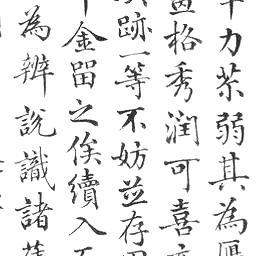 力苶弱其為
格秀潤可喜
跡一等不妨並存
金留之俟續入
為辨說識諸